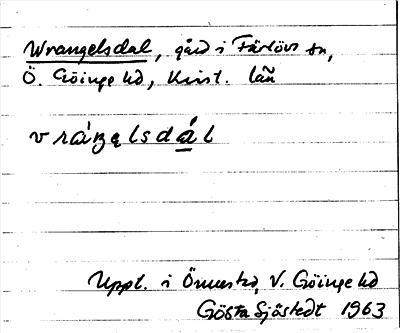 Wrangelsdal, gård i Färlövs sn,
Ö. Göinge hd, Krist. län
vráŋəlsdál
Uppt. i Önnestad, V. Göinge hd
Gösta Sjöstedt 1963